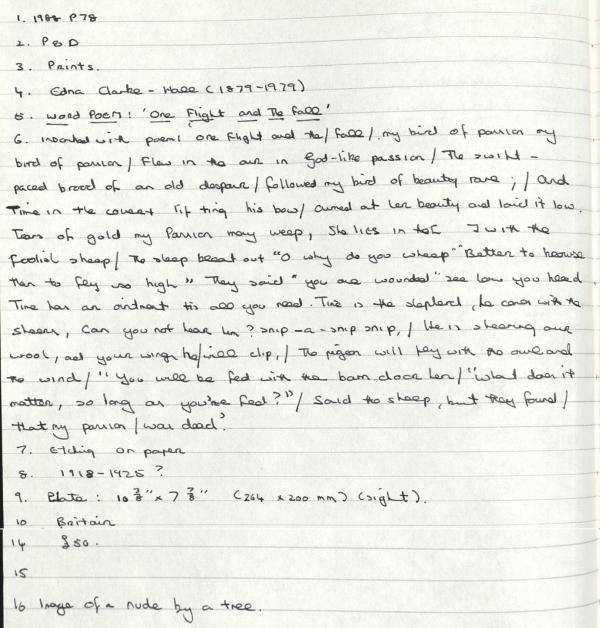 1. 1988 P78
2. P & D
3. Prints.
4. Edna Clarke-Hall (1879-1979)
5. Word Poem: 'One Flight and The Fall'
6. Inscribed with poem: 'One Flight and the / fall /. my bird of passion my
bird of passion / Flew in the air in God-like passion / The swift -
paced brood of an old despair / followed my bird of beauty rare; / And
Time in the covert lifting his bow / aimed at her beauty and laid it low.
Tears of gold my Passion may weep, She lies in the [ ] with the
foolish sheep / The sheep bleat out "O why do you wheep" "Better to browse
then to fly so high" They said "you are wounded" "see low you heard
Time has an ointment tis all you need. Time is the shepherd, he comes with the
shears, Can you not hear him? snip-a-snip snip, / He is shearing our
wool, and your wings he/will clip, / The pigeon will fly with the owl and
the wind / "You will be fed with the barn door hen / "What does it
matter, so long as you're fed?" / Said the sheep, but they found /
that my passion / was dead'.
7. Etching on paper
8. 1918-1925 ?
9. Plate: 10 3/8" x 7 7/8" (264 x 200 mm) (sight).
10 Britain
14 £50.
15
16 Image of a nude by a tree.